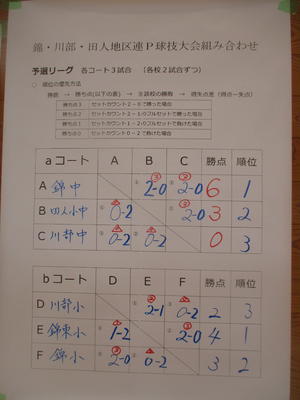 錦・川部・田人地区連P球技大会組み合わせ
予選リーグ 各コート3試合 (各校2試合ずつ)
○ 順位の優先方法
勝数 → 勝ち点(以下の表) → 当該校の勝敗 → 得失点差(得点ー失点)
勝ち点3 セットカウント2-0で勝った場合
勝ち点2 セットカウント2-1のフルセットで勝った場合
勝ち点1 セットカウント1-2のフルセットで負けた場合
勝ち点0 セットカウント0-2で負けた場合
aコート A B C 勝点 順位
A 錦中 2-0 2-0 6 1
B 田人小中 0-2 2-0 3 2
C 川部中 0-2 0-2 0 3
bコート D E F 勝点 順位
D 川部小 2-1 0-2 2 3
E 錦東小 1-2 2-0 4 1
F 錦小 2-0 0-2 3 2